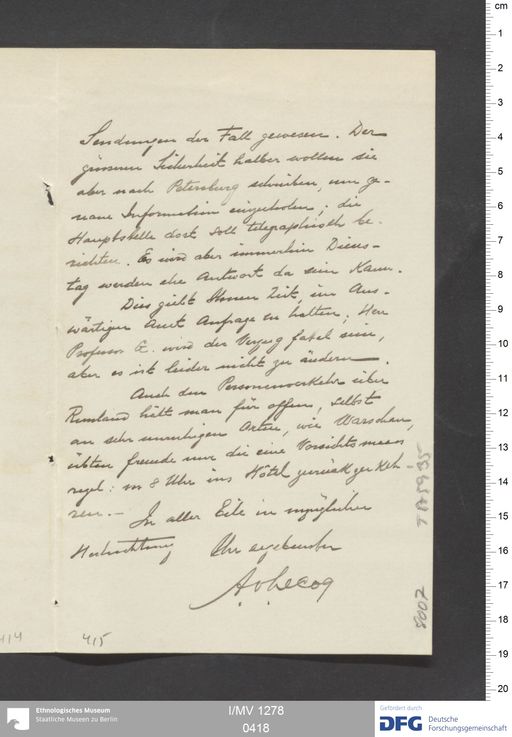 Sendungen der Fall gewesen. Der
grösseren Sicherheit halber wollen sie
aber nach Petersburg schreiben, um ge-
naue Information einzuholen; die
Hauptstelle dort soll telegraphisch be-
richten. Es wird aber immerhin Diens-
tag werden ehe Antwort da sein kann.
Dies giebt Ihnen Zeit, im Aus-
wärtigen Amt Anfrage zu halten; Herr
Professor G. wird der Verzug fatal sein,
aber es ist leider nicht zu ändern.
Auch den Personenverkehr über
Russland hält man für offen, selbst
an sehr unruhigen Orten, wie Warschau,
übten Fremde nur die eine Vorsichtsmass
regel: um 8 Uhr ins Hôtel zurückzukeh
ren. –
In aller Eile in vorzüglicher
Hochachtung Ihr ergebenster
A. v. Lecoq
414
415
8007
cm
1
2
3
4
5
6
7
8
9
10
11
12
13
14
15
16
17
18
19
20
Ethnologisches Museum
Staatliche Museen zu Berlin
I/MV 1278
0418
Gefördert durch
DFG
Deutsche
Forschungsgemeinschaft